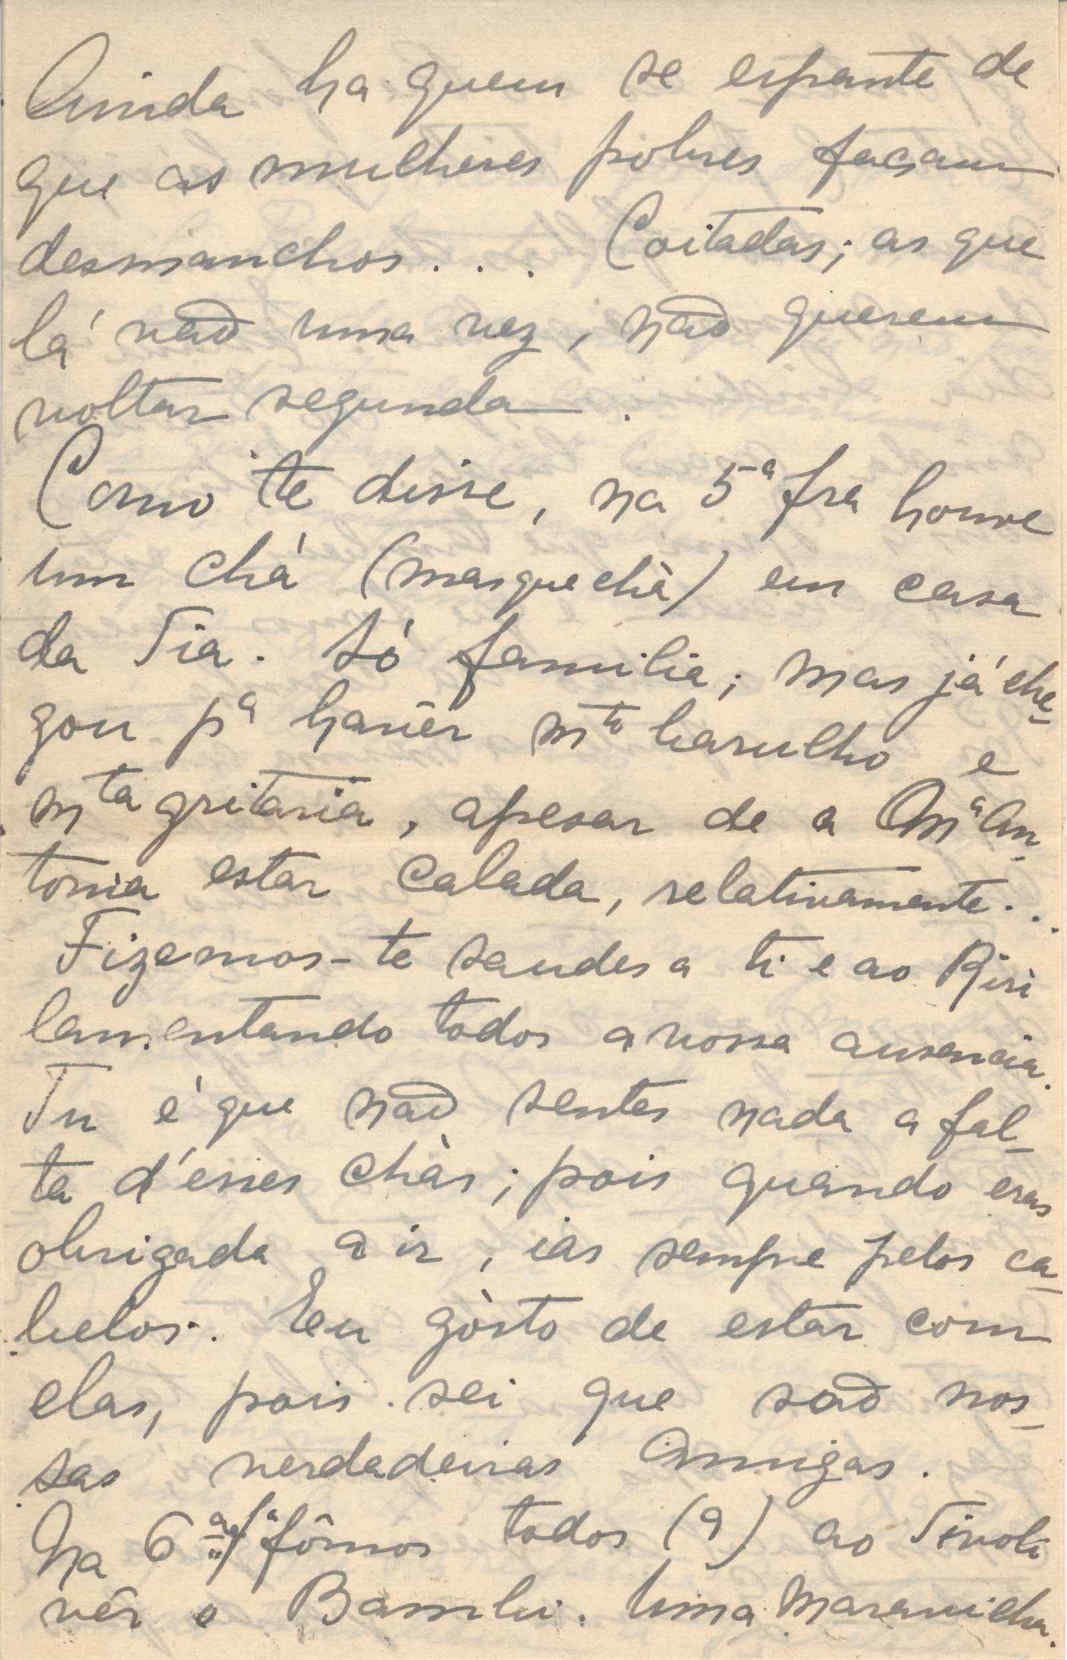 Ainda ha quem se espante de
que as mulheres pobres façam
desmanchos... Coitadas; as que
lá vão uma vez, não querem
voltar segunda.
Como te disse, na 5ª fra houve
um chá (masquechá) em casa
da Tia. Só familia; mas já che-
gou pª havêr mto barulho e
mta gritaria, apesar de a Mª An-
tonia estar calada, relativamente..
Fizemos-te saudes a ti e ao Riri
lamentando todos a vossa ausencia.
Tu é que não sentes nada a fal-
ta d'esses chás; pois quando eras
obrigada a ir, ias sempre pelos ca-
belos. Eu gósto de estar com
elas, pois sei que são nos-
sas verdadeiras Amigas.
Na 6ª fª fômos todos (9) ao Tivoli
vêr o Bambi. Uma Maravilha.